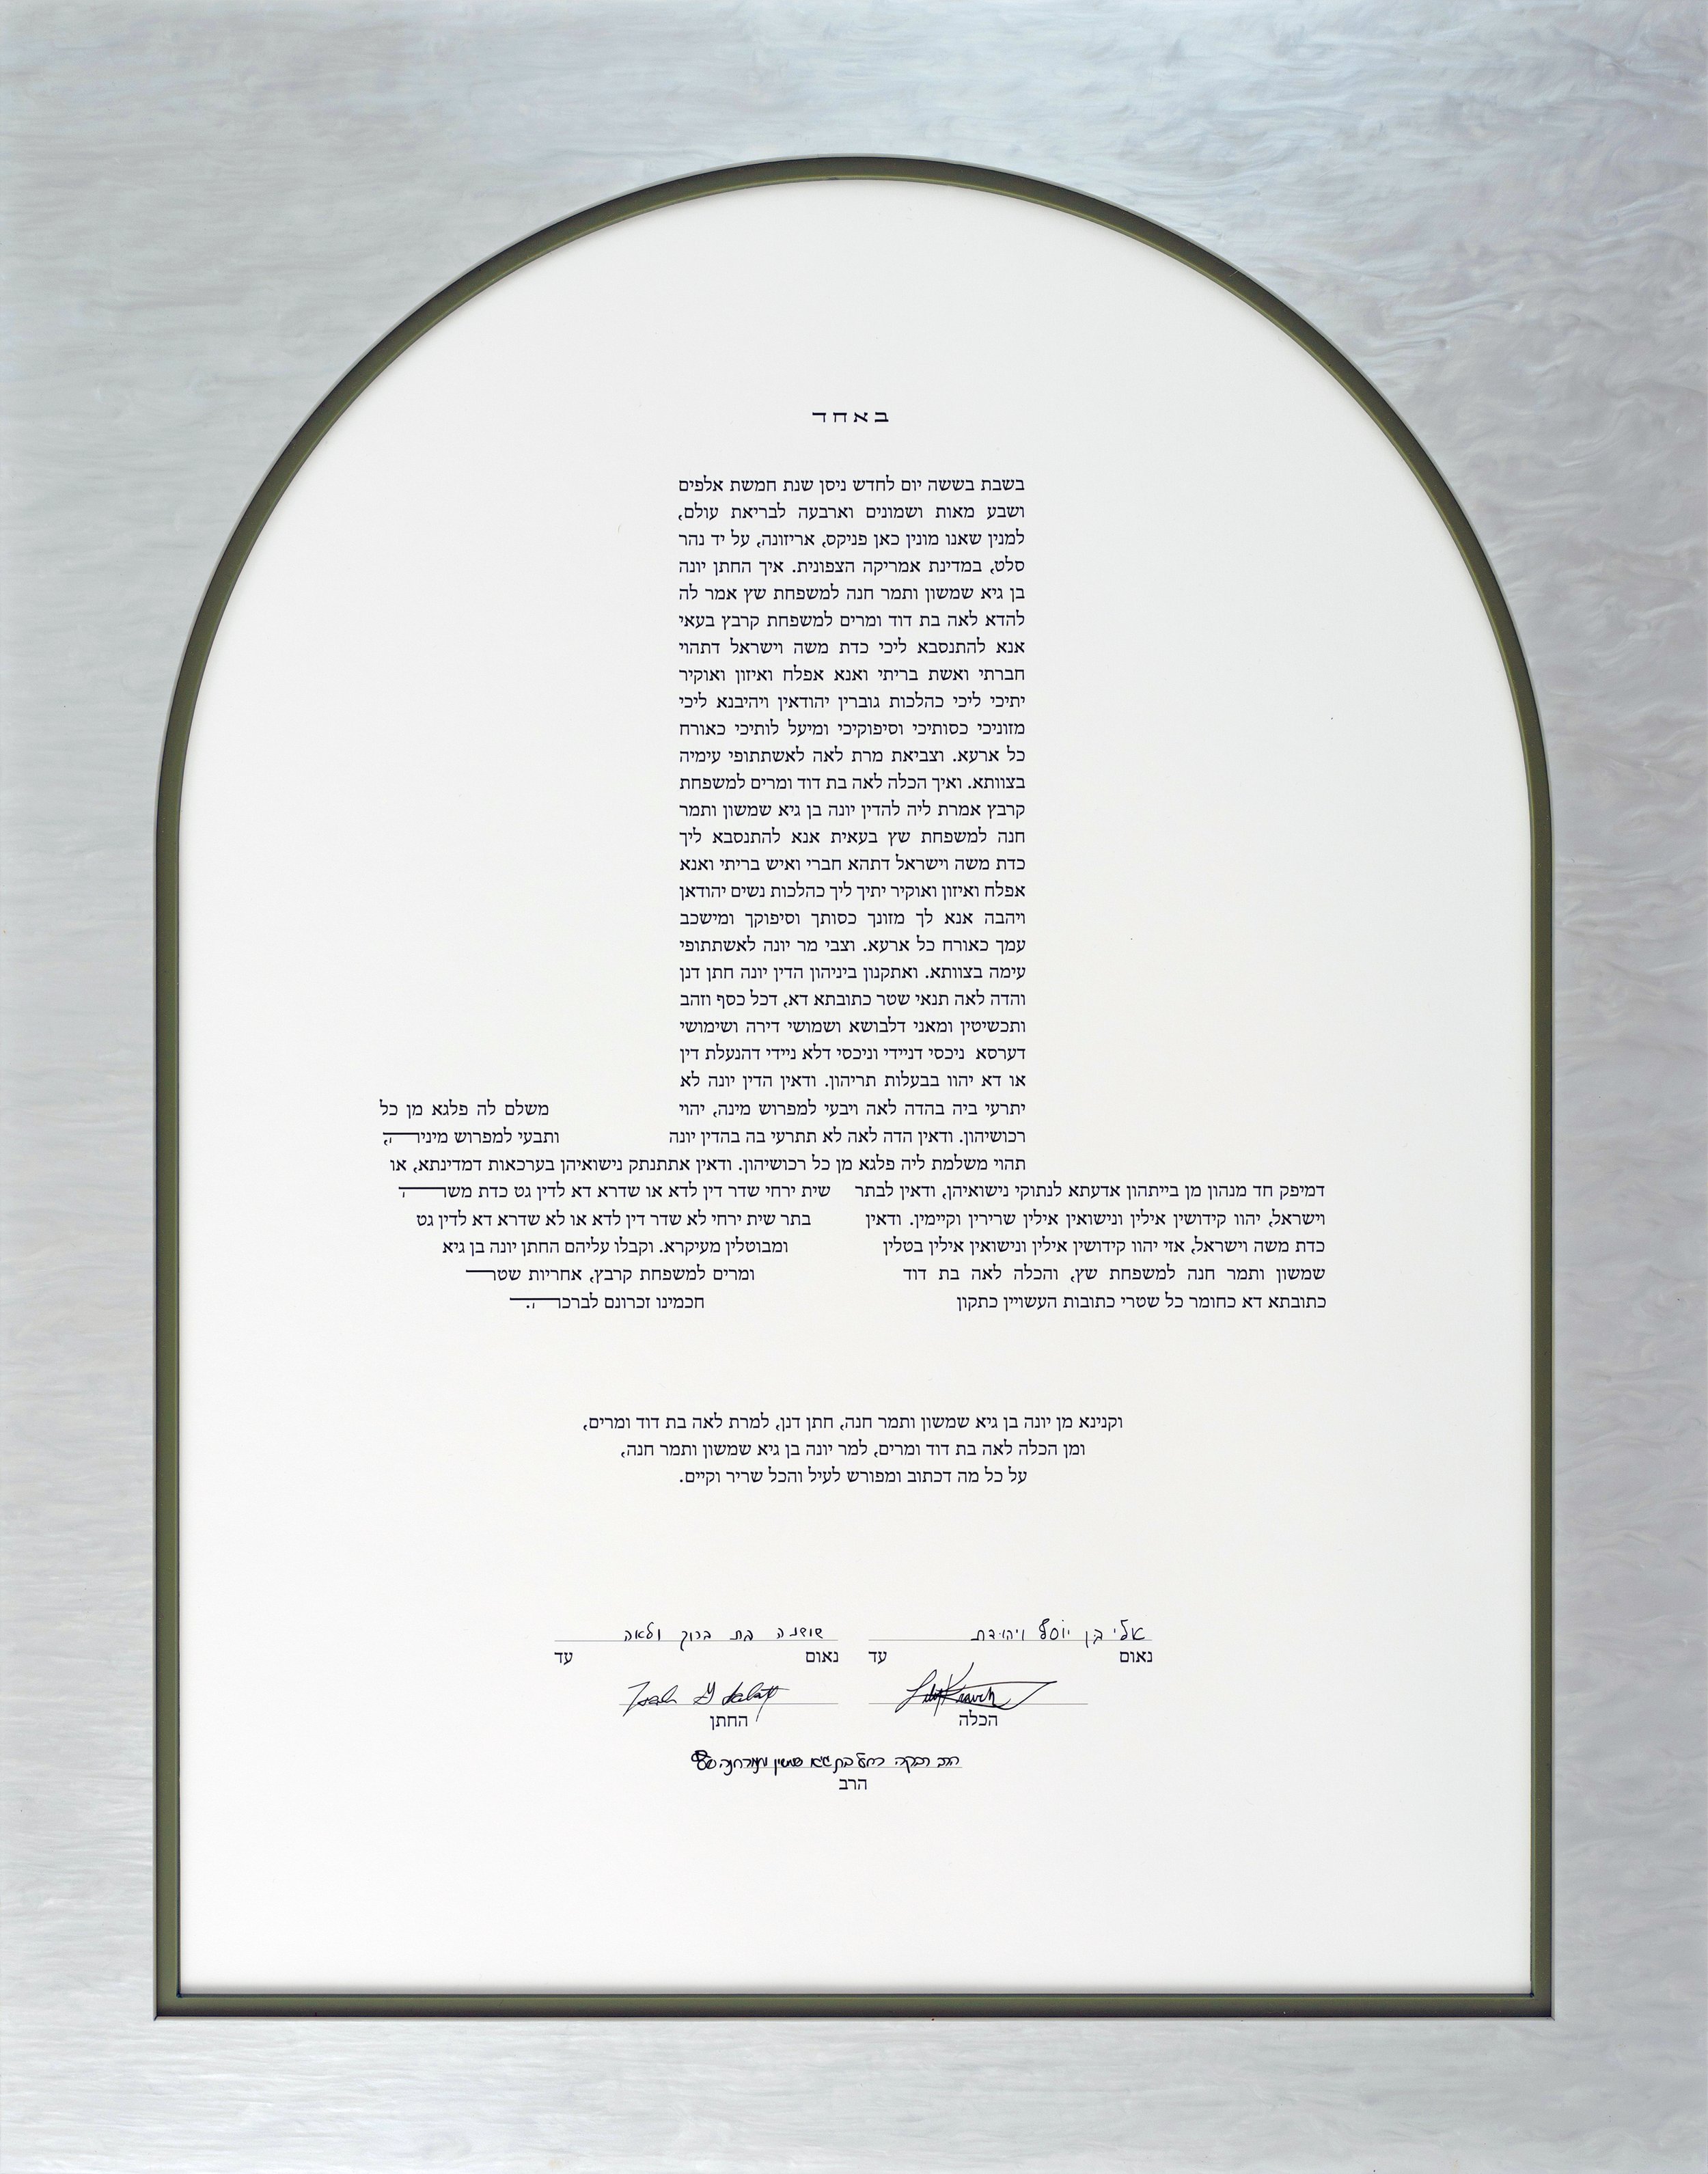 באחד
בשבת בששה יום לחדש ניסן שנת חמשת אלפים
ושבע מאות ושמונים וארבעה לבריאת עולם,
למנין שאנו מונין כאן פניקס, אריזונה, על יד נהר
סלט, במדינת אמריקה הצפונית. איך החתן יונה
בן גיא שמשון ותמר חנה למשפחת שץ אמר לה
להדא לאה בת דוד ומרים למשפחת קרבץ בעאי
אנא להתנסבא ליכי כדת משה וישראל דתהוי
חברתי ואשת בריתי ואנא אפלח ואיזון ואוקיר
יתיכי ליכי כהלכות גוברין יהודאין ויהיבנא ליכי
מזוניכי כסותיכי וסיפוקיכי ומיעל לותיכי כאורח
כל ארעא. וצביאת מרת לאה לאשתתופי עימיה
בצוותא. ואיך הכלה לאה בת דוד ומרים למשפחת
קרבץ אמרת ליה להדין יונה בן גיא שמשון ותמר
חנה למשפחת שץ בעאית אנא להתנסבא ליך
כדת משה וישראל דתהא חברי ואיש בריתי ואנא
אפלח ואיזון ואוקיר יתיך ליך כהלכות נשים יהודאן
ויהבה אנא לך מזונך כסותך וסיפוקך ומישכב
עמך כאורח כל ארעא. וצבי מר יונה לאשתתופי
עימה בצוותא. ואתקנון ביניהון הדין יונה חתן דנן
והדה לאה תנאי שטר כתובתא דא, דכל כסף וזהב
ותכשיטין ומאני דלבושא ושמושי דירה ושימושי
דערסא ניכסי דניידי וניכסי דלא ניידי דהנעלת דין
או דא יהוו בבעלות תריהון. ודאין הדין יונה לא
יתרעי ביה בהדה לאה ויבעי למפרוש מינה, יהוי משלם לה פלגא מן כל
רכושיהון. ודאין הדה לאה לא תתרעי בה בהדין יונה ותבעי למפרוש מיניה,
תהוי משלמת ליה פלגא מן כל רכושיהון. ודאין אתתנתק נישואיהן בערכאות דמדינתא, או
דמיפק חד מנהון מן בייתהון אדעתא לנתוקי נישואיהן, ודאין לבתר שית ירחי שדר דין לדא או שדרא דא לדין גט כדת משה
וישראל, יהוו קידושין אילין ונישואין אילין שרירין וקיימין. ודאין בתר שית ירחי לא שדר דין לדא או לא שדרא דא לדין גט
כדת משה וישראל, אזי יהוו קידושין אילין ונישואין אילין בטלין ומבוטלין מעיקרא. וקבלו עליהם החתן יונה בן גיא
שמשון ותמר חנה למשפחת שץ, והכלה לאה בת דוד ומרים למשפחת קרבץ, אחריות שטר
כתובתא דא כחומר כל שטרי כתובות העשויין כתקון חכמינו זכרונם לברכה.
וקנינא מן יונה בן גיא שמשון ותמר חנה, חתן דנן, למרת לאה בת דוד ומרים,
ומן הכלה לאה בת דוד ומרים, למר יונה בן גיא שמשון ותמר חנה,
על כל מה דכתוב ומפורש לעיל והכל שריר וקיים.
אלי בן יוסף ויהודת שושנה בת ברוך ולאה
נאום עד נאום עד
הכלה החתן
הרב רבקה רחל בת גיא שמשון ותמר חנה
הרב